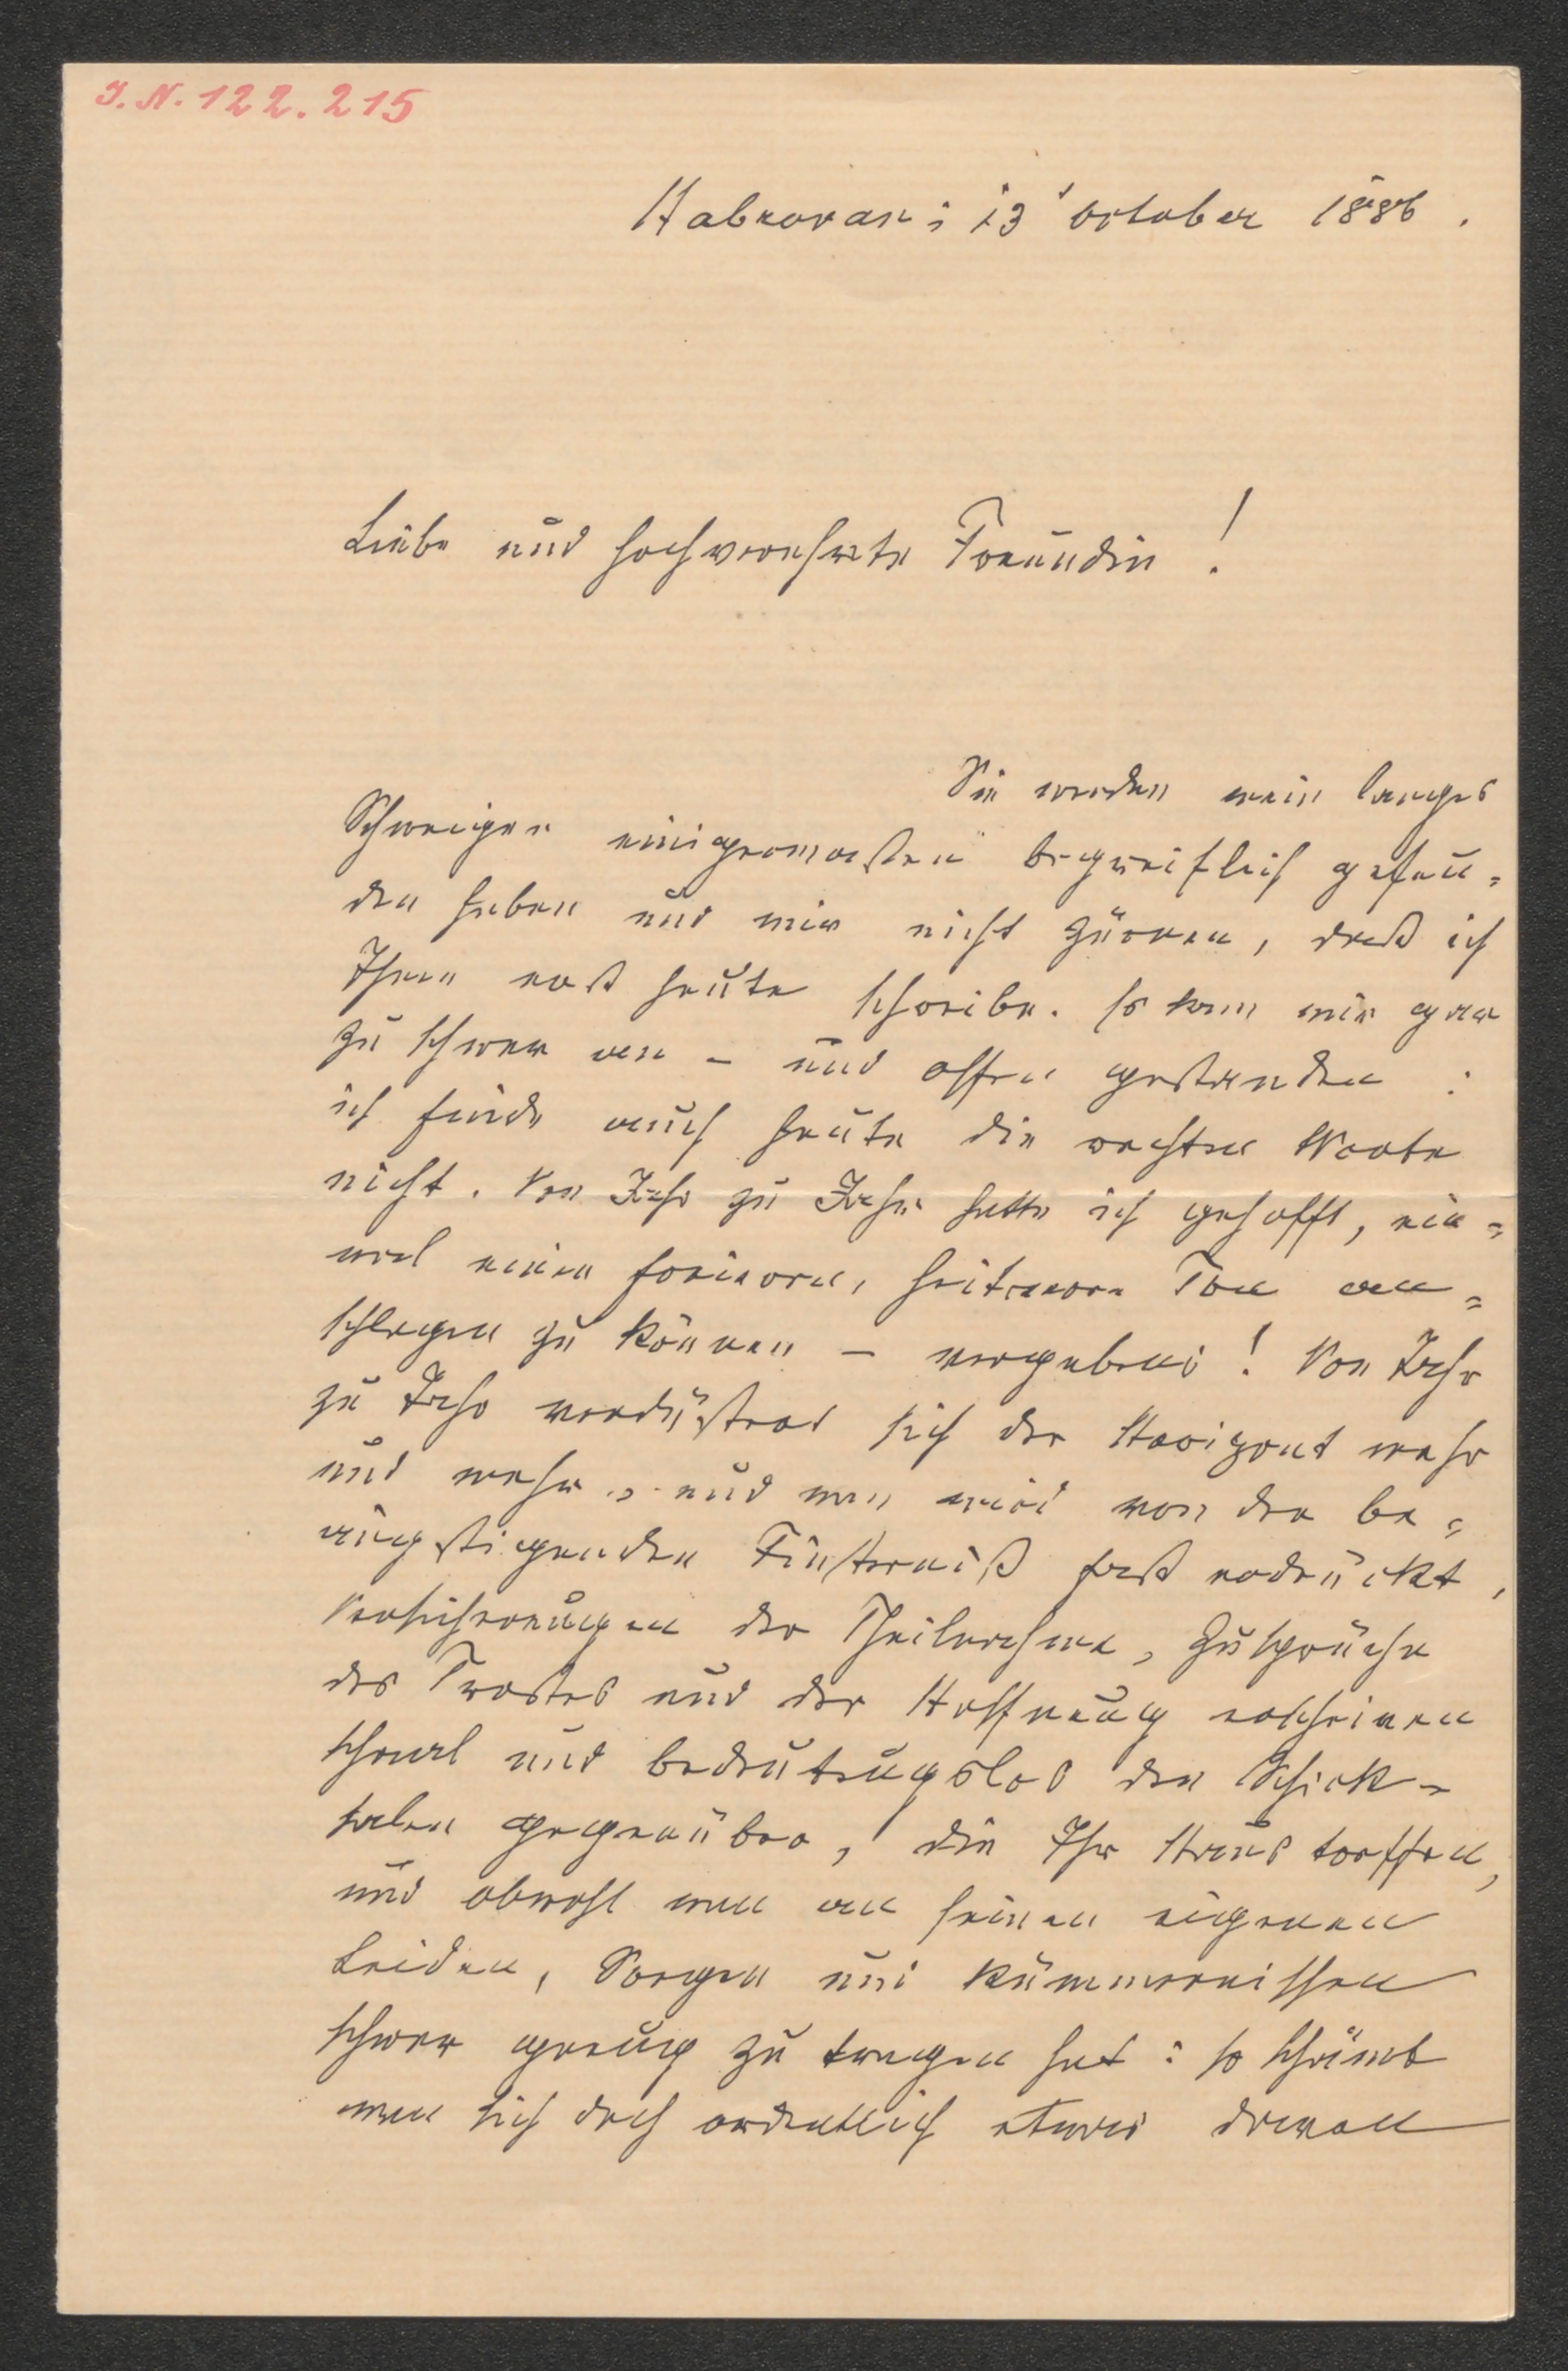 I. N. 122.215
Habrovan; 13t October 1886.
Liebe und hochverehrte Freundin!
Sie werden mein langes
Schweigen einigermaßen begreiflich gefun=
den haben und mir nicht zürnen, daß ich
Ihnen erst heute schreibe. Es kam mir gar
zu schwer an – und offen gestanden:
ich finde auch heute die rechten Worte
nicht. Von Jahr zu Jahr hatte ich gehofft, ein=
mal einen freieren, heiteren Ton an=
schlagen zu können – vergebens! Von Jahr
zu Jahr verdüstert sich der Horizont mehr
und mehr und man wird von der be=
ängstigenden Finsterniß fast erdrückt,
Versicherungen der Theilnahme, Zusprüche
des Trostes und der Hoffnung erscheinen
schaal und bedeutungslos den Schick=
salen gegenüber, die Ihr Haus treffen,
und obwohl man an seinen eigenen
Leiden, Sorgen und Kümmernissen
schwer genug zu tragen hat: so schämt
man sich doch ordentlich etwas davon